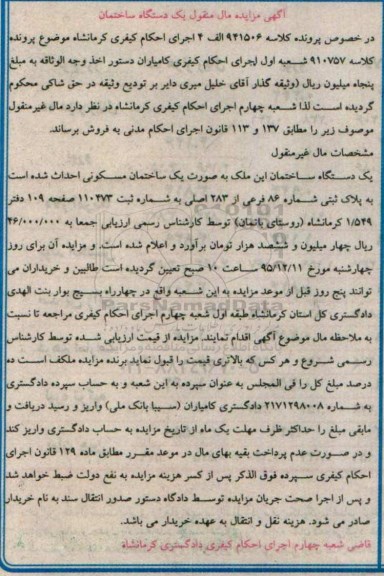 آگهی مزایده مال منقول یک دستگاه ساختمان
در خصوص پرونده کلاسه ۹۴۱۵۰۶ الف ۴ اجرای احکام کیفری کرمانشاه موضوع پرونده
کلاسه ۹۱۰۷۵۷ شعبه اول اجرای احکام کیفری کامیاران دستور اخذ وجه الوثاقه به مبلغ
پنجاه میلیون ریال (وثیقه گذار آقای خلیل میری دایر بر تودیع وثیقه در حق شاکی محکوم
گردیده است لذا شعبه چهارم اجرای احکام کیفری کرمانشاه در نظر دارد مال غیرمنقول
موصوف زیر را مطابق ۱۳۷ و ۱۱۳ قانون اجرای احکام مدنی به فروش برساند.
مشخصات مال غیرمنقول
یک دستگاه ساختمان این ملک به صورت یک ساختمان مسکونی احداث شده است
به پلاک ثبتی شماره ۸۶ فرعی از ۲۸۳ اصلی به شماره ثبت ۱۱۰۴۷۳ صفحه ۱۰۹ دفتر
۱/۵۴۹ کرمانشاه (روستای باتمان) توسط کارشناس رسمی ارزیابی جمعا به ۴۶/۰۰۰/۰۰۰
ریال چهار میلیون و ششصد هزار تومان برآورد و اعلام شده است. و مزایده آن برای روز
چهارشنبه مورخ ۹۵/۱۲/۱۱ ساعت ۱۰ صبح تعیین گردیده است طالبین و خریداران می
توانند پنج روز قبل از موعد مزایده به این شعبه واقع در چهارراه بسیج بلوار بنت الهدی
دادگستری کل استان کرمانشاه طبقه اول شعبه چهارم اجرای احکام کیفری مراجعه تا نسبت
به ملاحظه مال موضوع آگهی اقدام نمایند. مزایده از قیمت ارزیابی شده توسط کارشناس
رسمی شروع و هر کس که بالاتری قیمت را قبول نماید برنده مزایده ملکف است ده
درصد مبلغ کل را فی المجلس به عنوان سپرده به این شعبه و به حساب سپرده دادگستری
به شماره ۲۱۷۱۲۹۸۰۰۸ دادگستری کامیاران (سیبا بانک ملی) واریز و رسید دریافت و
مابقی مبلغ را حداکثر ظرف مهلت یک ماه از تاریخ مزایده به حساب دادگستری واریز کند
و در صورت عدم پرداخت بقیه بهای مال در موعد مقرر مطابق ماده ۱۲۹ قانون اجرای
احکام کیفری سپرده فوق الذکر پس از کسر هزینه مزایده به نفع دولت ضبط خواهد شد
و پس از اجرا صحت جریان مزایده توسط دادگاه دستور صدور انتقال سند به نام خریدار
صادر می شود. هزینه نقل و انتقال به عهده خریدار می باشد.
قاضی شعبه چهارم اجرای احکام کیفری دادگستری کرمانشاه